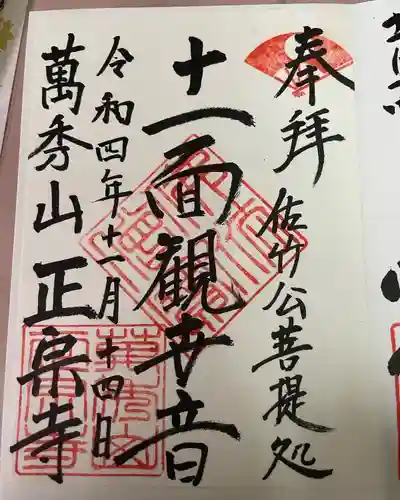 奉拝
佐竹公菩提処
十一面観世音
令和四年十一月十四日
萬秀山正宗寺